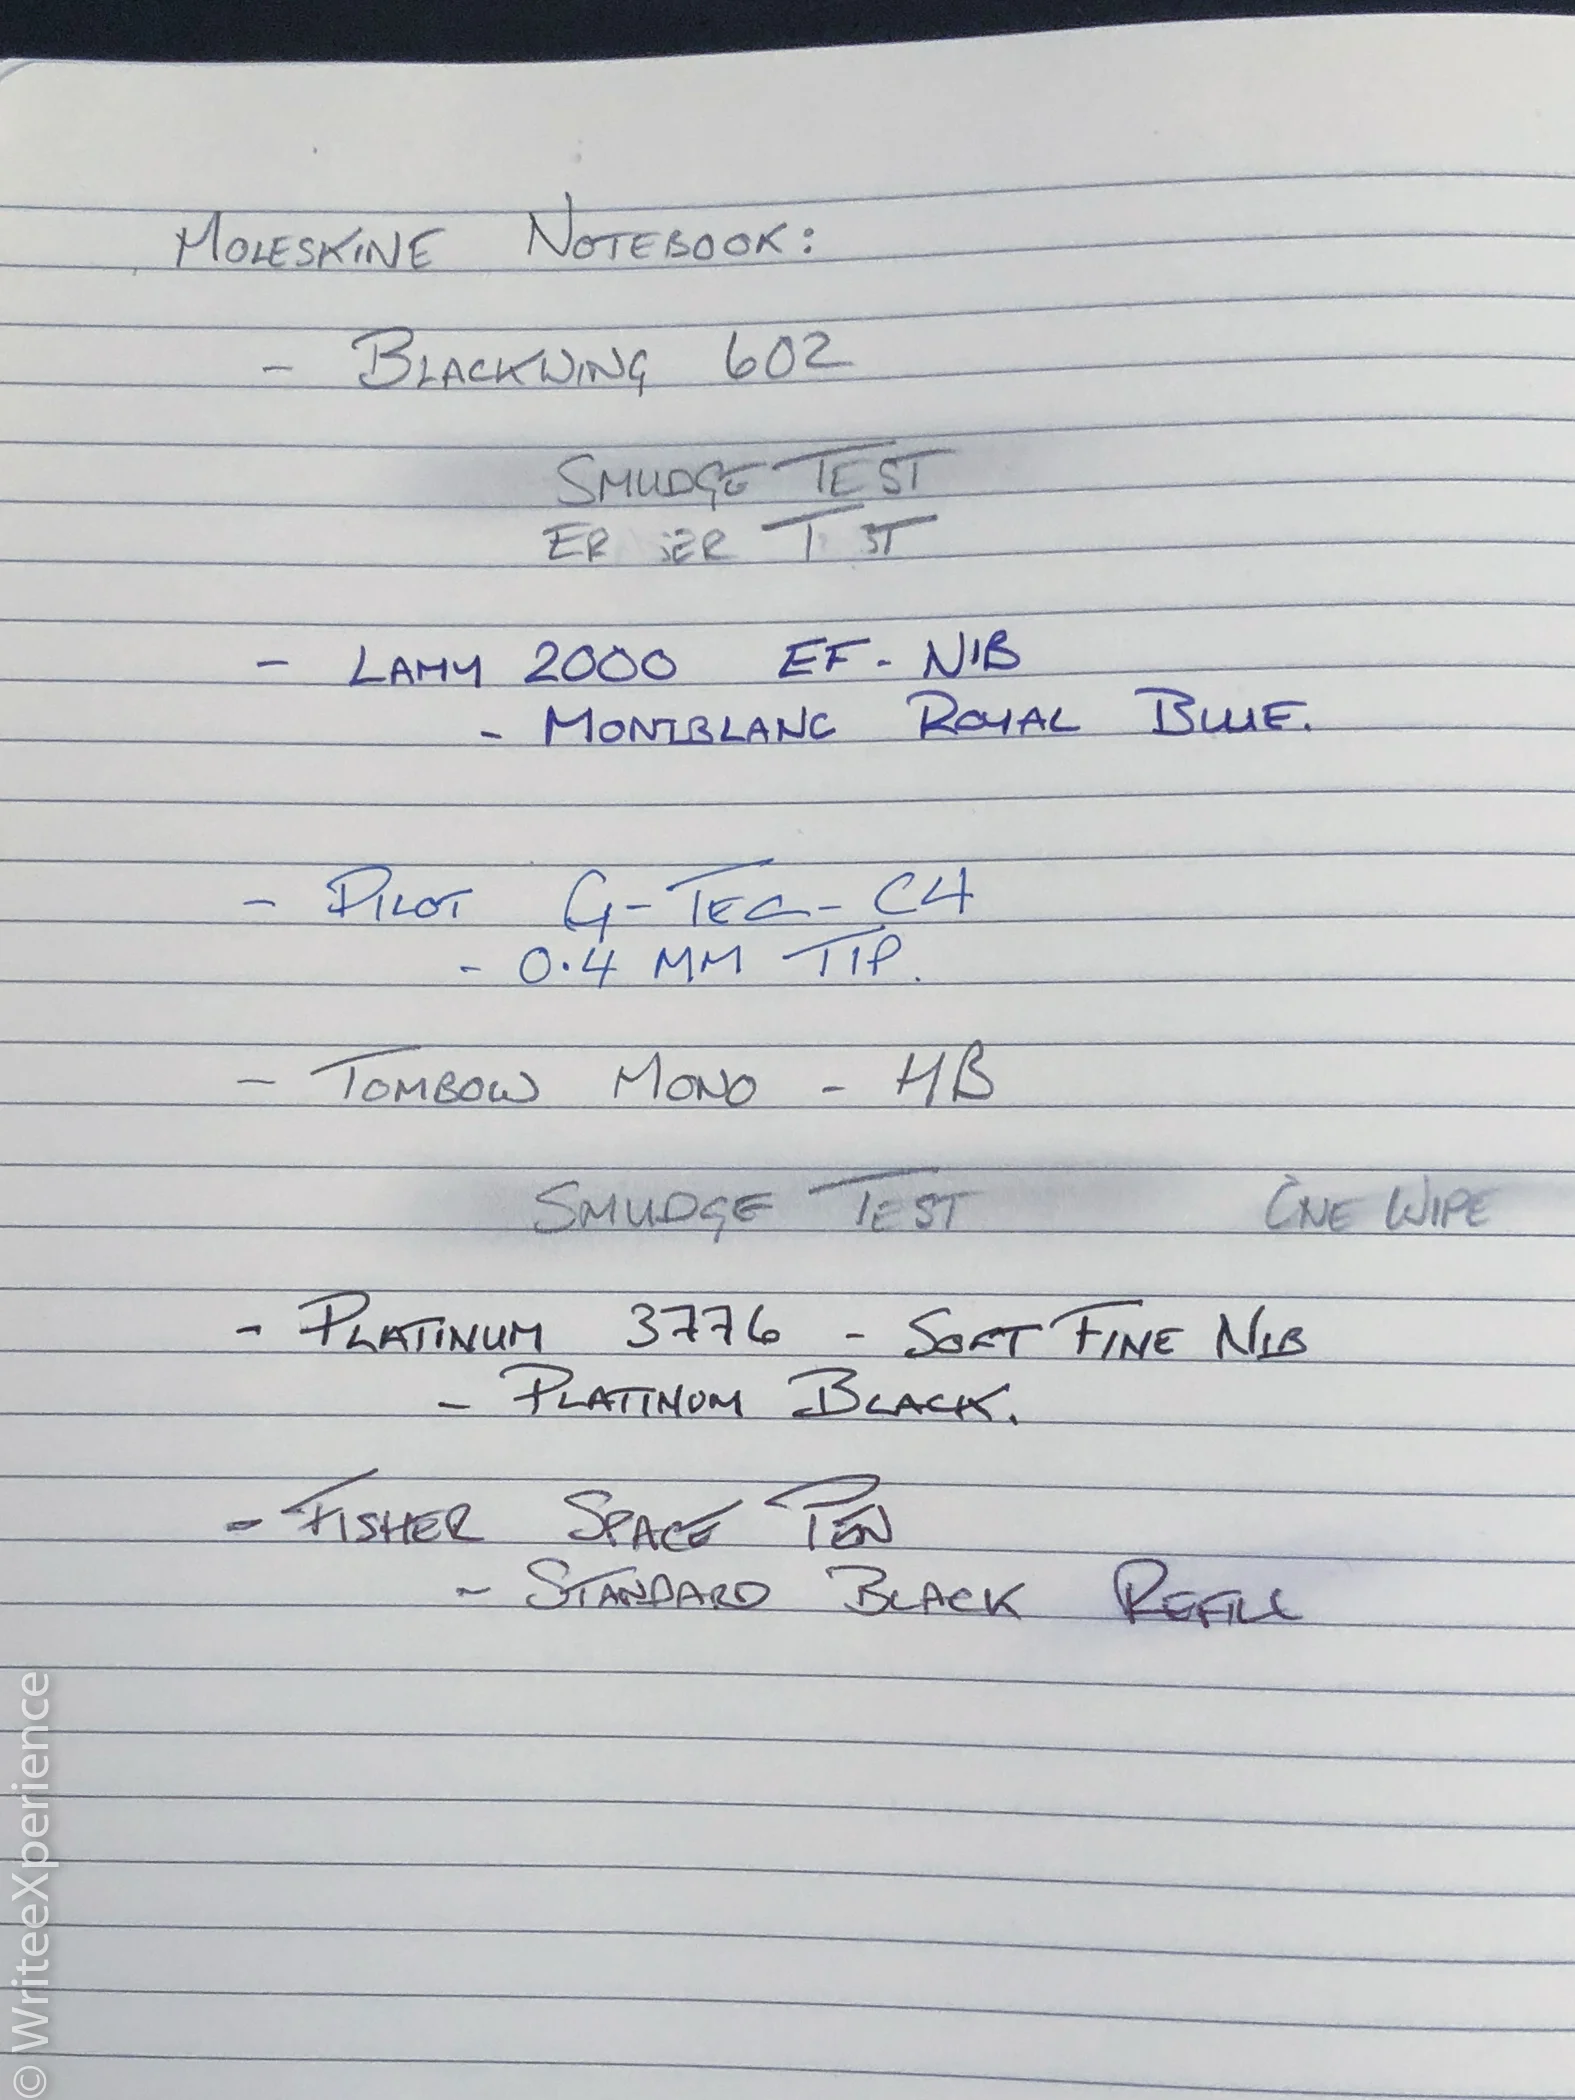 MOLESKINE NOTEBOOK:
- BLACKWING 602
SMUDGE TEST
ER SER T ST
- LAMY 2000 EF - NIB
- MONTBLANC ROYAL BLUE.
- PILOT G-TEC-C4
- 0.4 MM TIP.
- TOMBOW MONO - HB
SMUDGE TEST ONE WIPE
- PLATINUM 3776 - SOFT FINE NIB
- PLATINUM BLACK.
- FISHER SPACE PEN
- STANDARD BLACK REFILL
© WriteeXperience